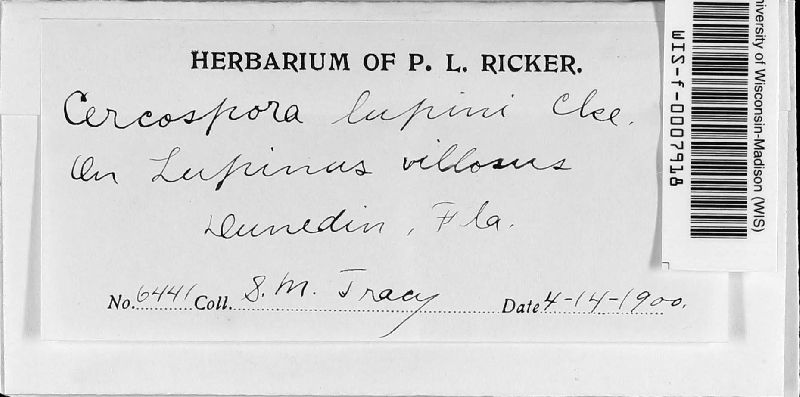 HERBARIUM OF P. L. RICKER.
Cercospora lupini Cke.
On Lupinus villosus
Dunedin, Fla.
No. 6441 Coll. S. M. Tracy Date 4-14-1900.
University of Wisconsin-Madison (WIS)
WIS-f-0007918